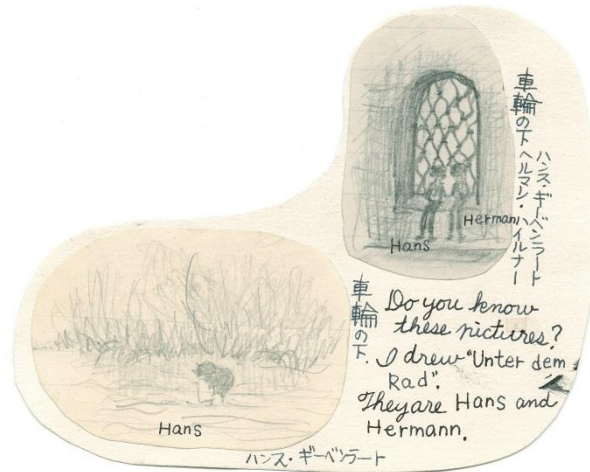 車輪の下
ハンス・ギーベンラート
ヘルマン・ハイルナー
Hans
Hermann
車輪の下.
Do you know
these pictures?
I drew "Unter dem
Rad".
They are Hans and
Hermann.
Hans
ハンス・ギーベンラート